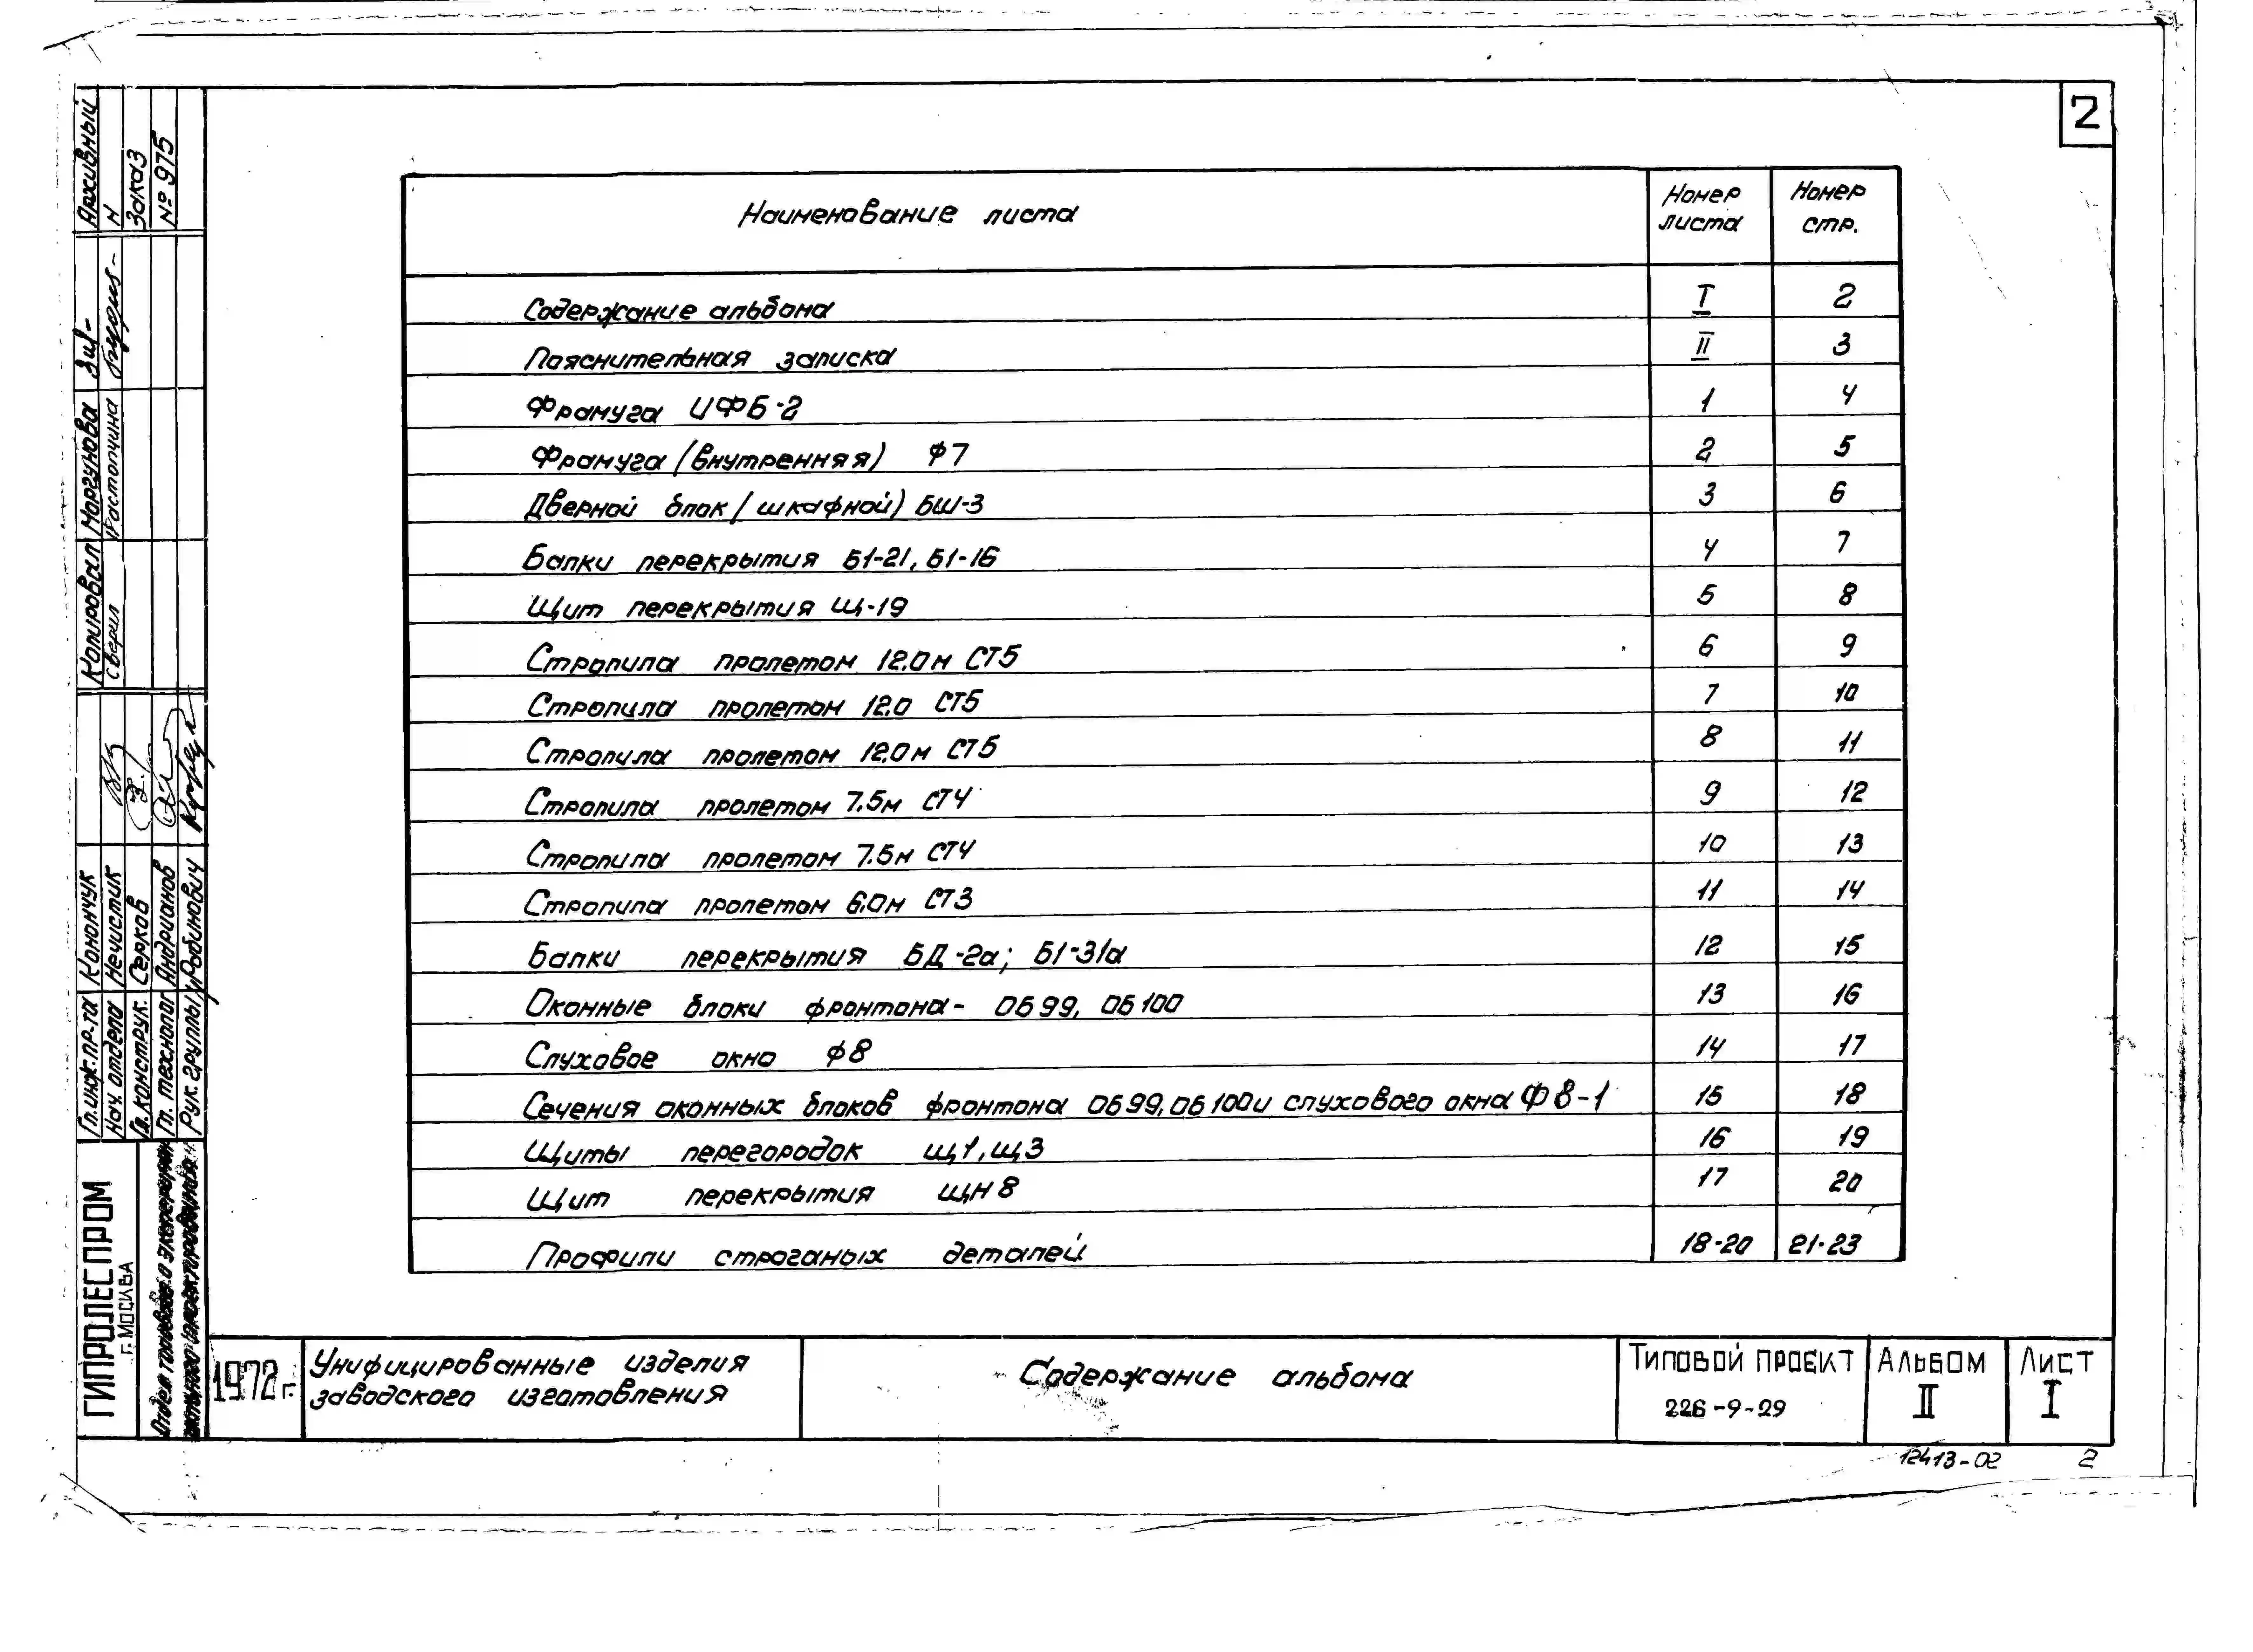 2
Наименование листа
Номер листа
Номер стр.
Содержание альбома I 2
Пояснительная записка II 3
Фрамуга ИФБ-2 1 4
Фрамуга (внутренняя) Ф7 2 5
Дверной блок (шкафной) БШ-3 3 6
Балки перекрытия Б1-21, Б1-16 4 7
Щит перекрытия Щ-19 5 8
Стропила пролетом 12.0м СТ5 6 9
Стропила пролетом 12.0 СТ5 7 10
Стропила пролетом 12.0м СТ5 8 11
Стропила пролетом 7.5м СТ4 9 12
Стропила пролетом 7.5м СТ4 10 13
Стропила пролетом 6.0м СТ3 11 14
Балки перекрытия БД-2а; Б1-31а 12 15
Оконные блоки фронтона- ОБ99, ОБ100 13 16
Слуховое окно Ф8 14 17
Сечения оконных блоков фронтона ОБ99, ОБ100 и слухового окна Ф8-1 15 18
Щиты перегородок Щ1, Щ3 16 19
Щит перекрытия ЩН8 17 20
Профили строганых деталей 18-20 21-23
1972 г.
Унифицированные изделия
заводского изготовления
Содержание альбома
Типовой проект
226-9-29
Альбом
II
Лист
I
12413-02 2
Архивный
N
Заказ
№ 975
Копировал Моргунова
Сверил Растопчина
Гл.инж.пр-та Конончук
Нач. отдела Нечистик
Гл.конструк. Серков
Гл. технолог Андрианов
Рук. группы Рабинович
ГИПРОЛЕСПРОМ
г. Москва